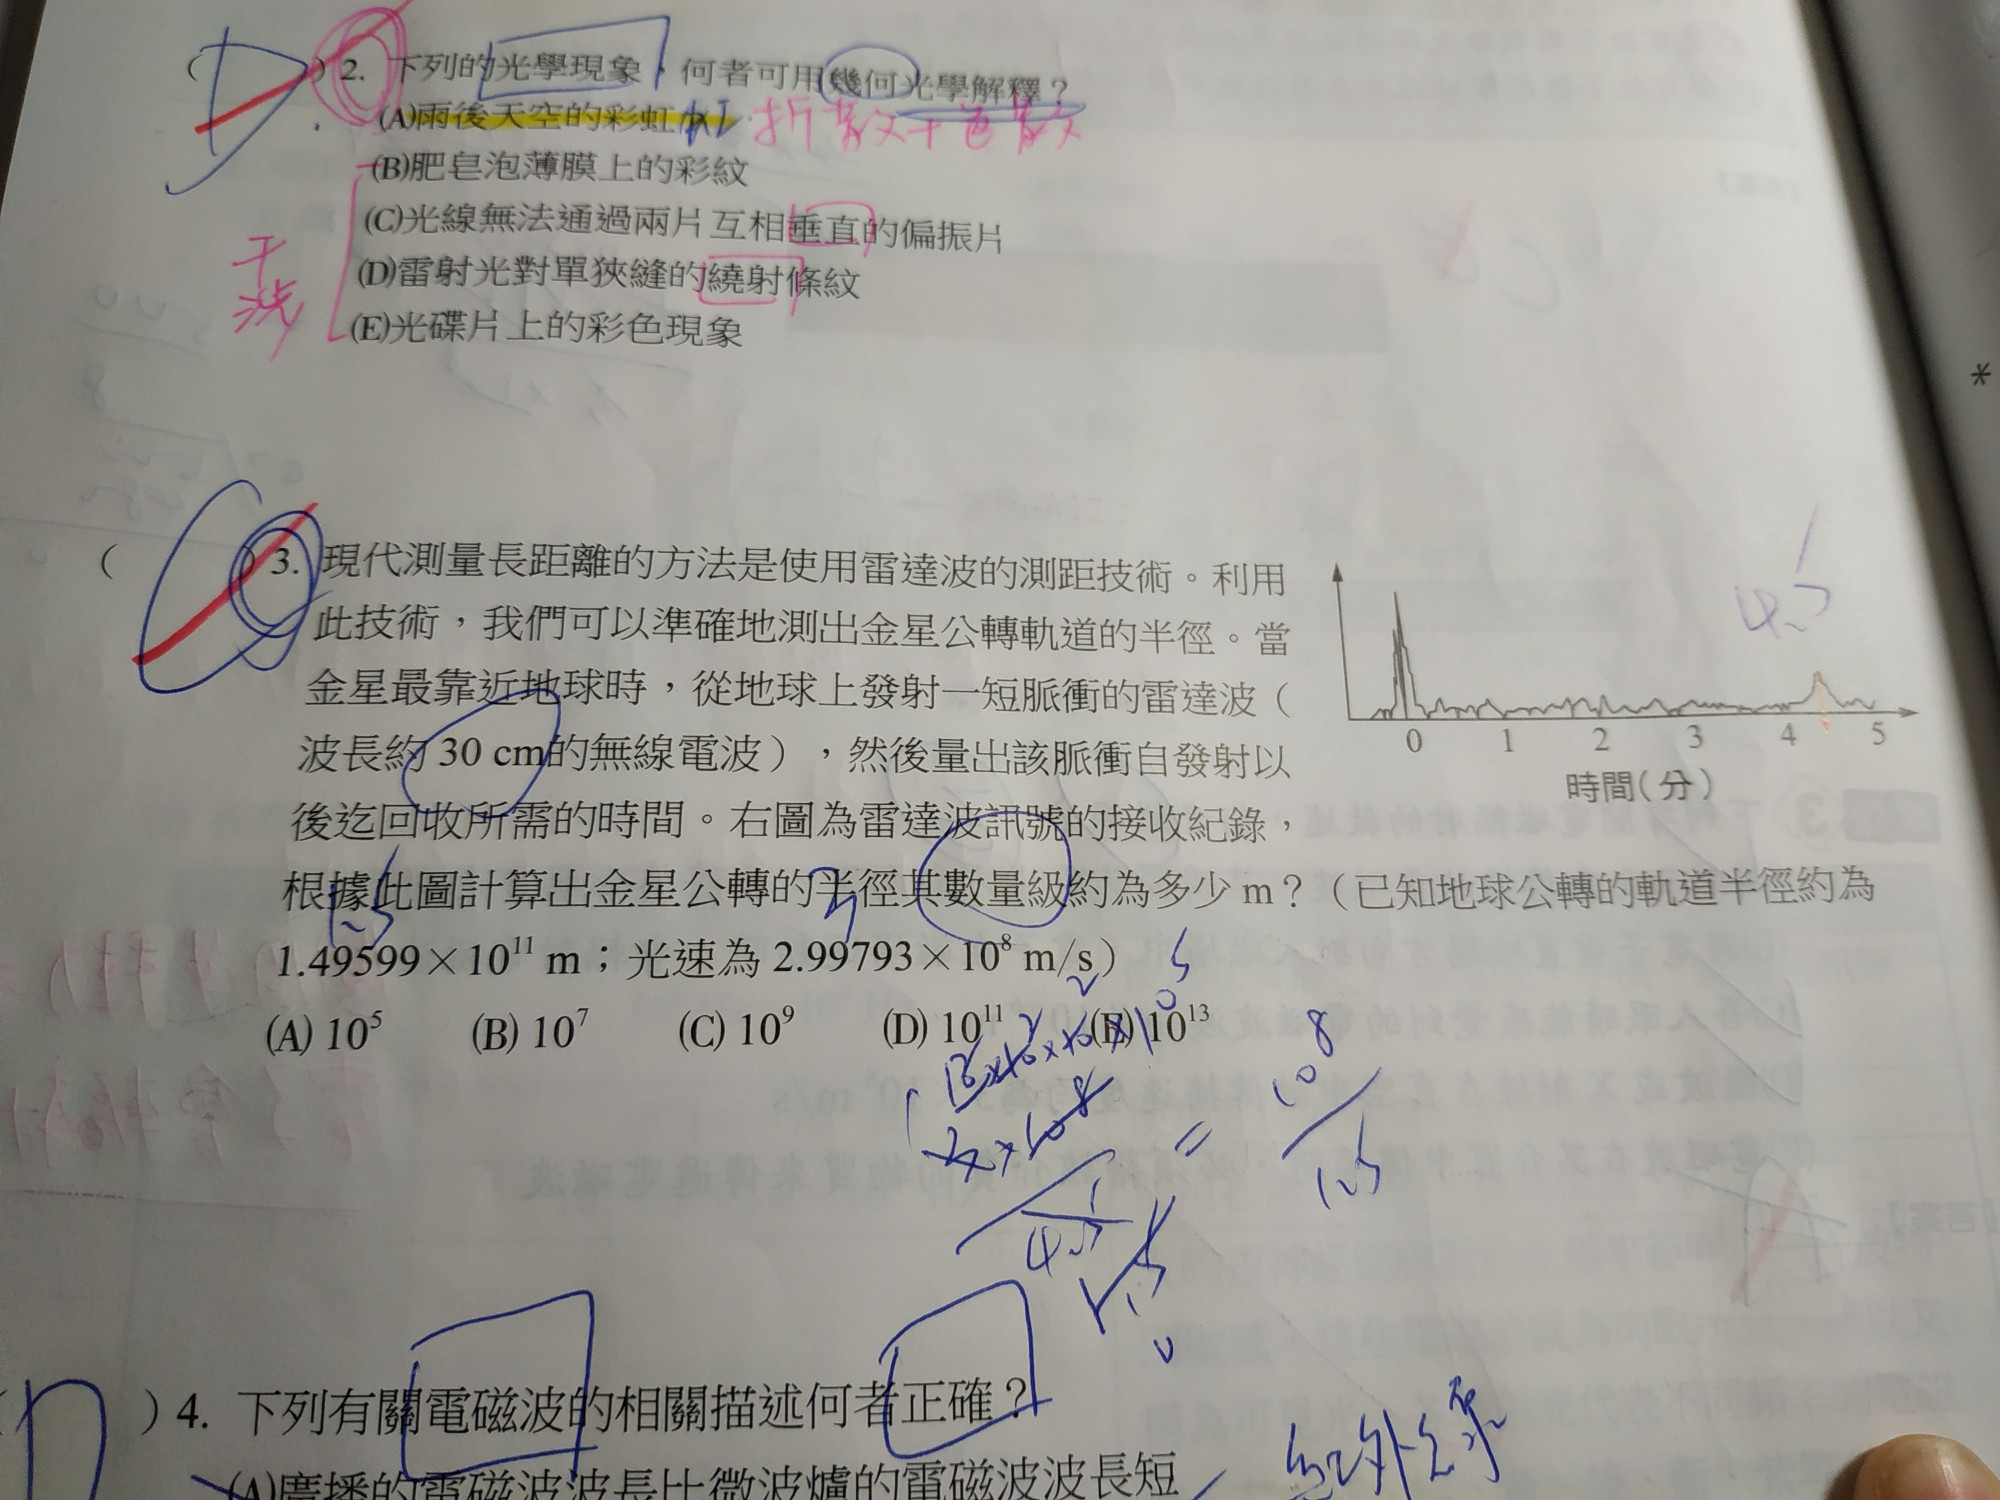 ( D )2. 下列的光學現象，何者可用幾何光學解釋？
(A)雨後天空的彩虹 折 散 + 色 散
(B)肥皂泡薄膜上的彩紋
(C)光線無法通過兩片互相垂直的偏振片
干涉
(D)雷射光對單狹縫的繞射條紋
(E)光碟片上的彩色現象
( )3. 現代測量長距離的方法是使用雷達波的測距技術。利用
此技術，我們可以準確地測出金星公轉軌道的半徑。當
金星最靠近地球時，從地球上發射一短脈衝的雷達波（
波長約 30 cm的無線電波），然後量出該脈衝自發射以
後迄回收所需的時間。右圖為雷達波訊號的接收紀錄，
根據此圖計算出金星公轉的半徑其數量級約為多少 m？（已知地球公轉的軌道半徑約為
1.5 3
1.49599×10¹¹ m；光速為 2.99793×10⁸ m/s）
(A) 10⁵ (B) 10⁷ (C) 10⁹ (D) 10¹¹ (E) 10¹³
0 1 2 3 4 5
時間(分)
4.5
= 10⁸
4.5
( )4. 下列有關電磁波的相關描述何者正確？
(A)廣播的電磁波波長比微波爐的電磁波波長短